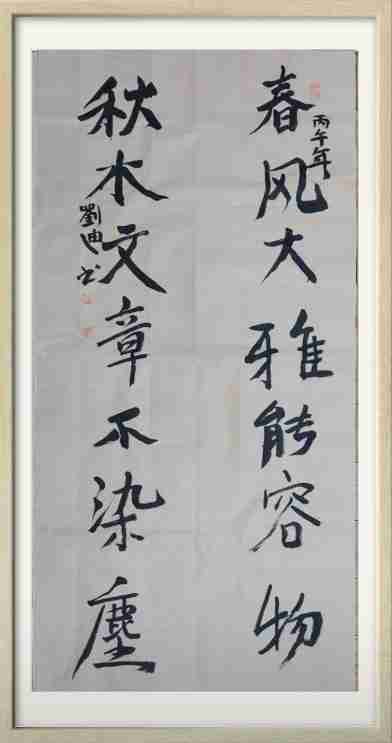 春风大雅能容物
丙午年
秋水文章不染尘
劉迪书